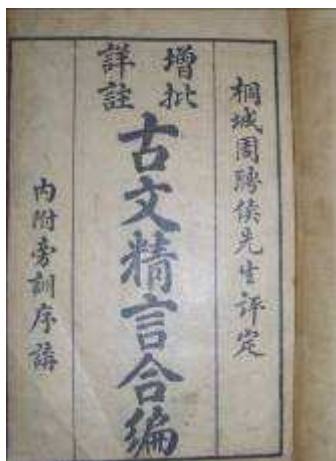 桐城周聘侯先生評定
增批
詳註
古文精言合編
內附旁訓序講